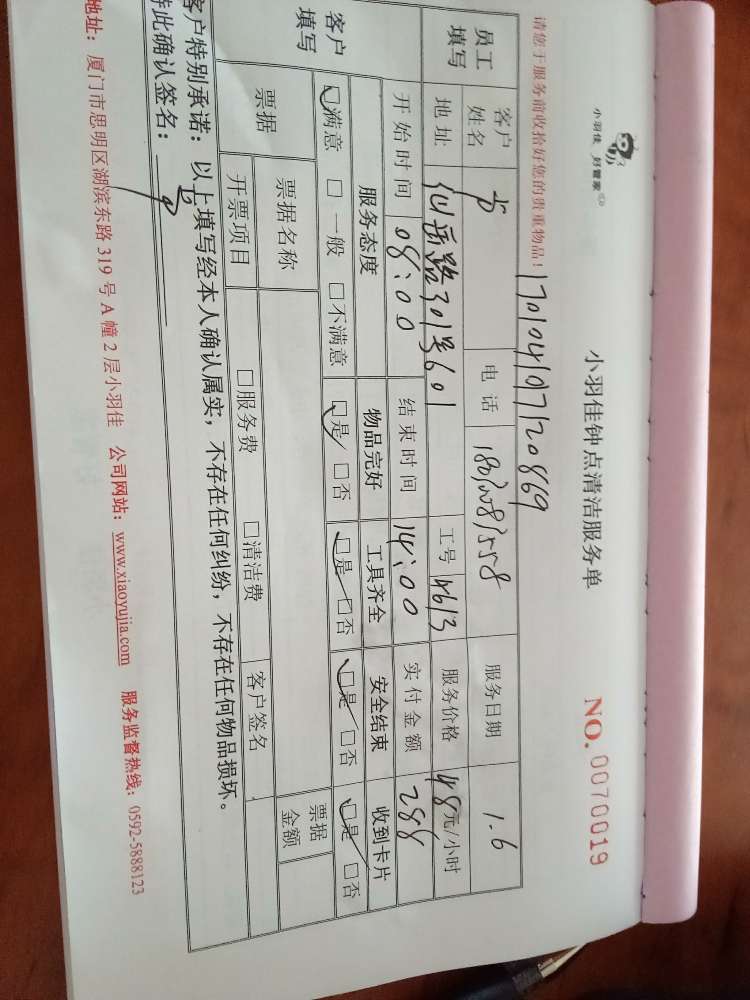 小羽佳 好管家
小羽佳钟点清洁服务单
NO. 0070019
请您于服务前收拾好您的贵重物品！
170104107120869
员工填写
客户姓名
电话
服务日期 1.6
地址 仙岳路301号601
工号 4613
服务价格 48元/小时
开始时间 08:00
结束时间 14:00
实付金额 288
客户填写
服务态度 物品完好 工具齐全 安全结束 收到卡片
☑满意 □一般 □不满意 ☑是 □否 ☑是 □否 ☑是 □否 ☑是 □否
票据
票据名称
票据金额
开票项目 □服务费 □清洁费 客户签名
客户特别承诺：以上填写经本人确认属实，不存在任何纠纷，不存在任何物品损坏。
特此确认签名：
地址：厦门市思明区湖滨东路319号A幢2层小羽佳 公司网站：www.xiaoyujia.com 服务监督热线：0592-5888123